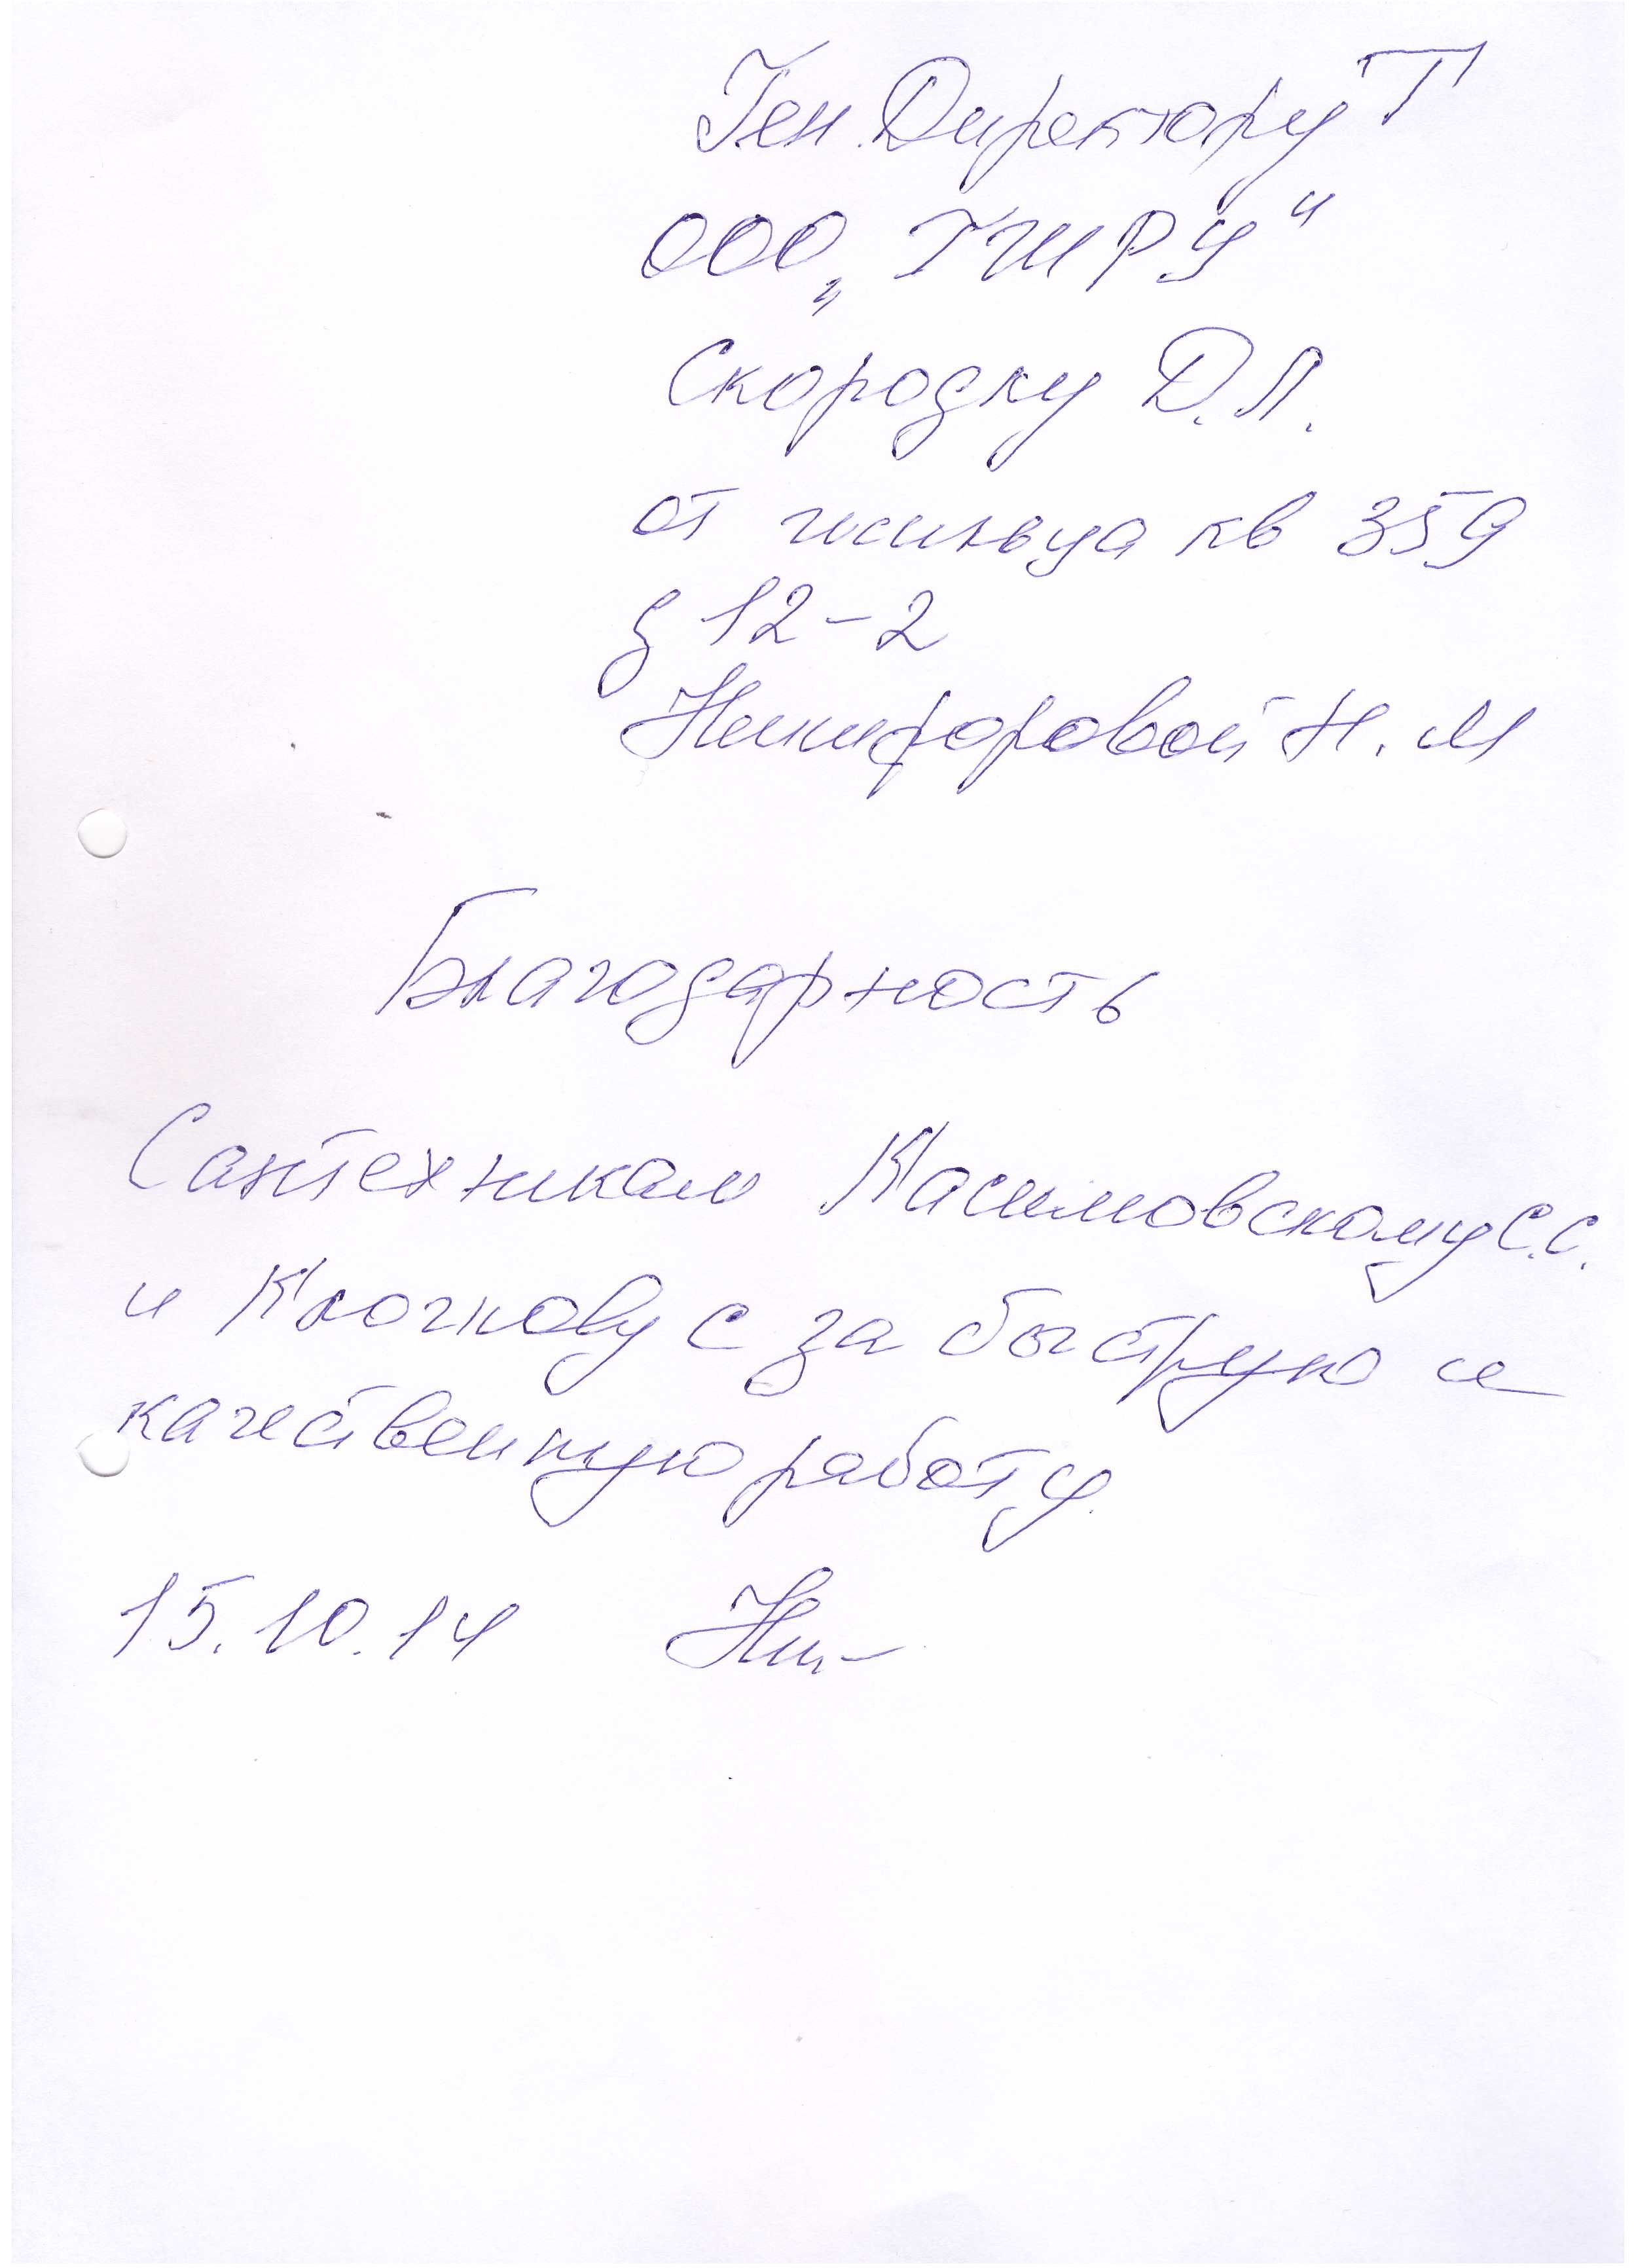 Ген. Директору Г
ООО „ГЖРУ"
Скородку Д.Л.
от жильца кв 359
д 12-2
Никифоровой Н. М
Благодарность
Сантехникам Касимовскому С.С.
и Клочкову С за быструю и
качественную работу.
15.10.14 Ни-